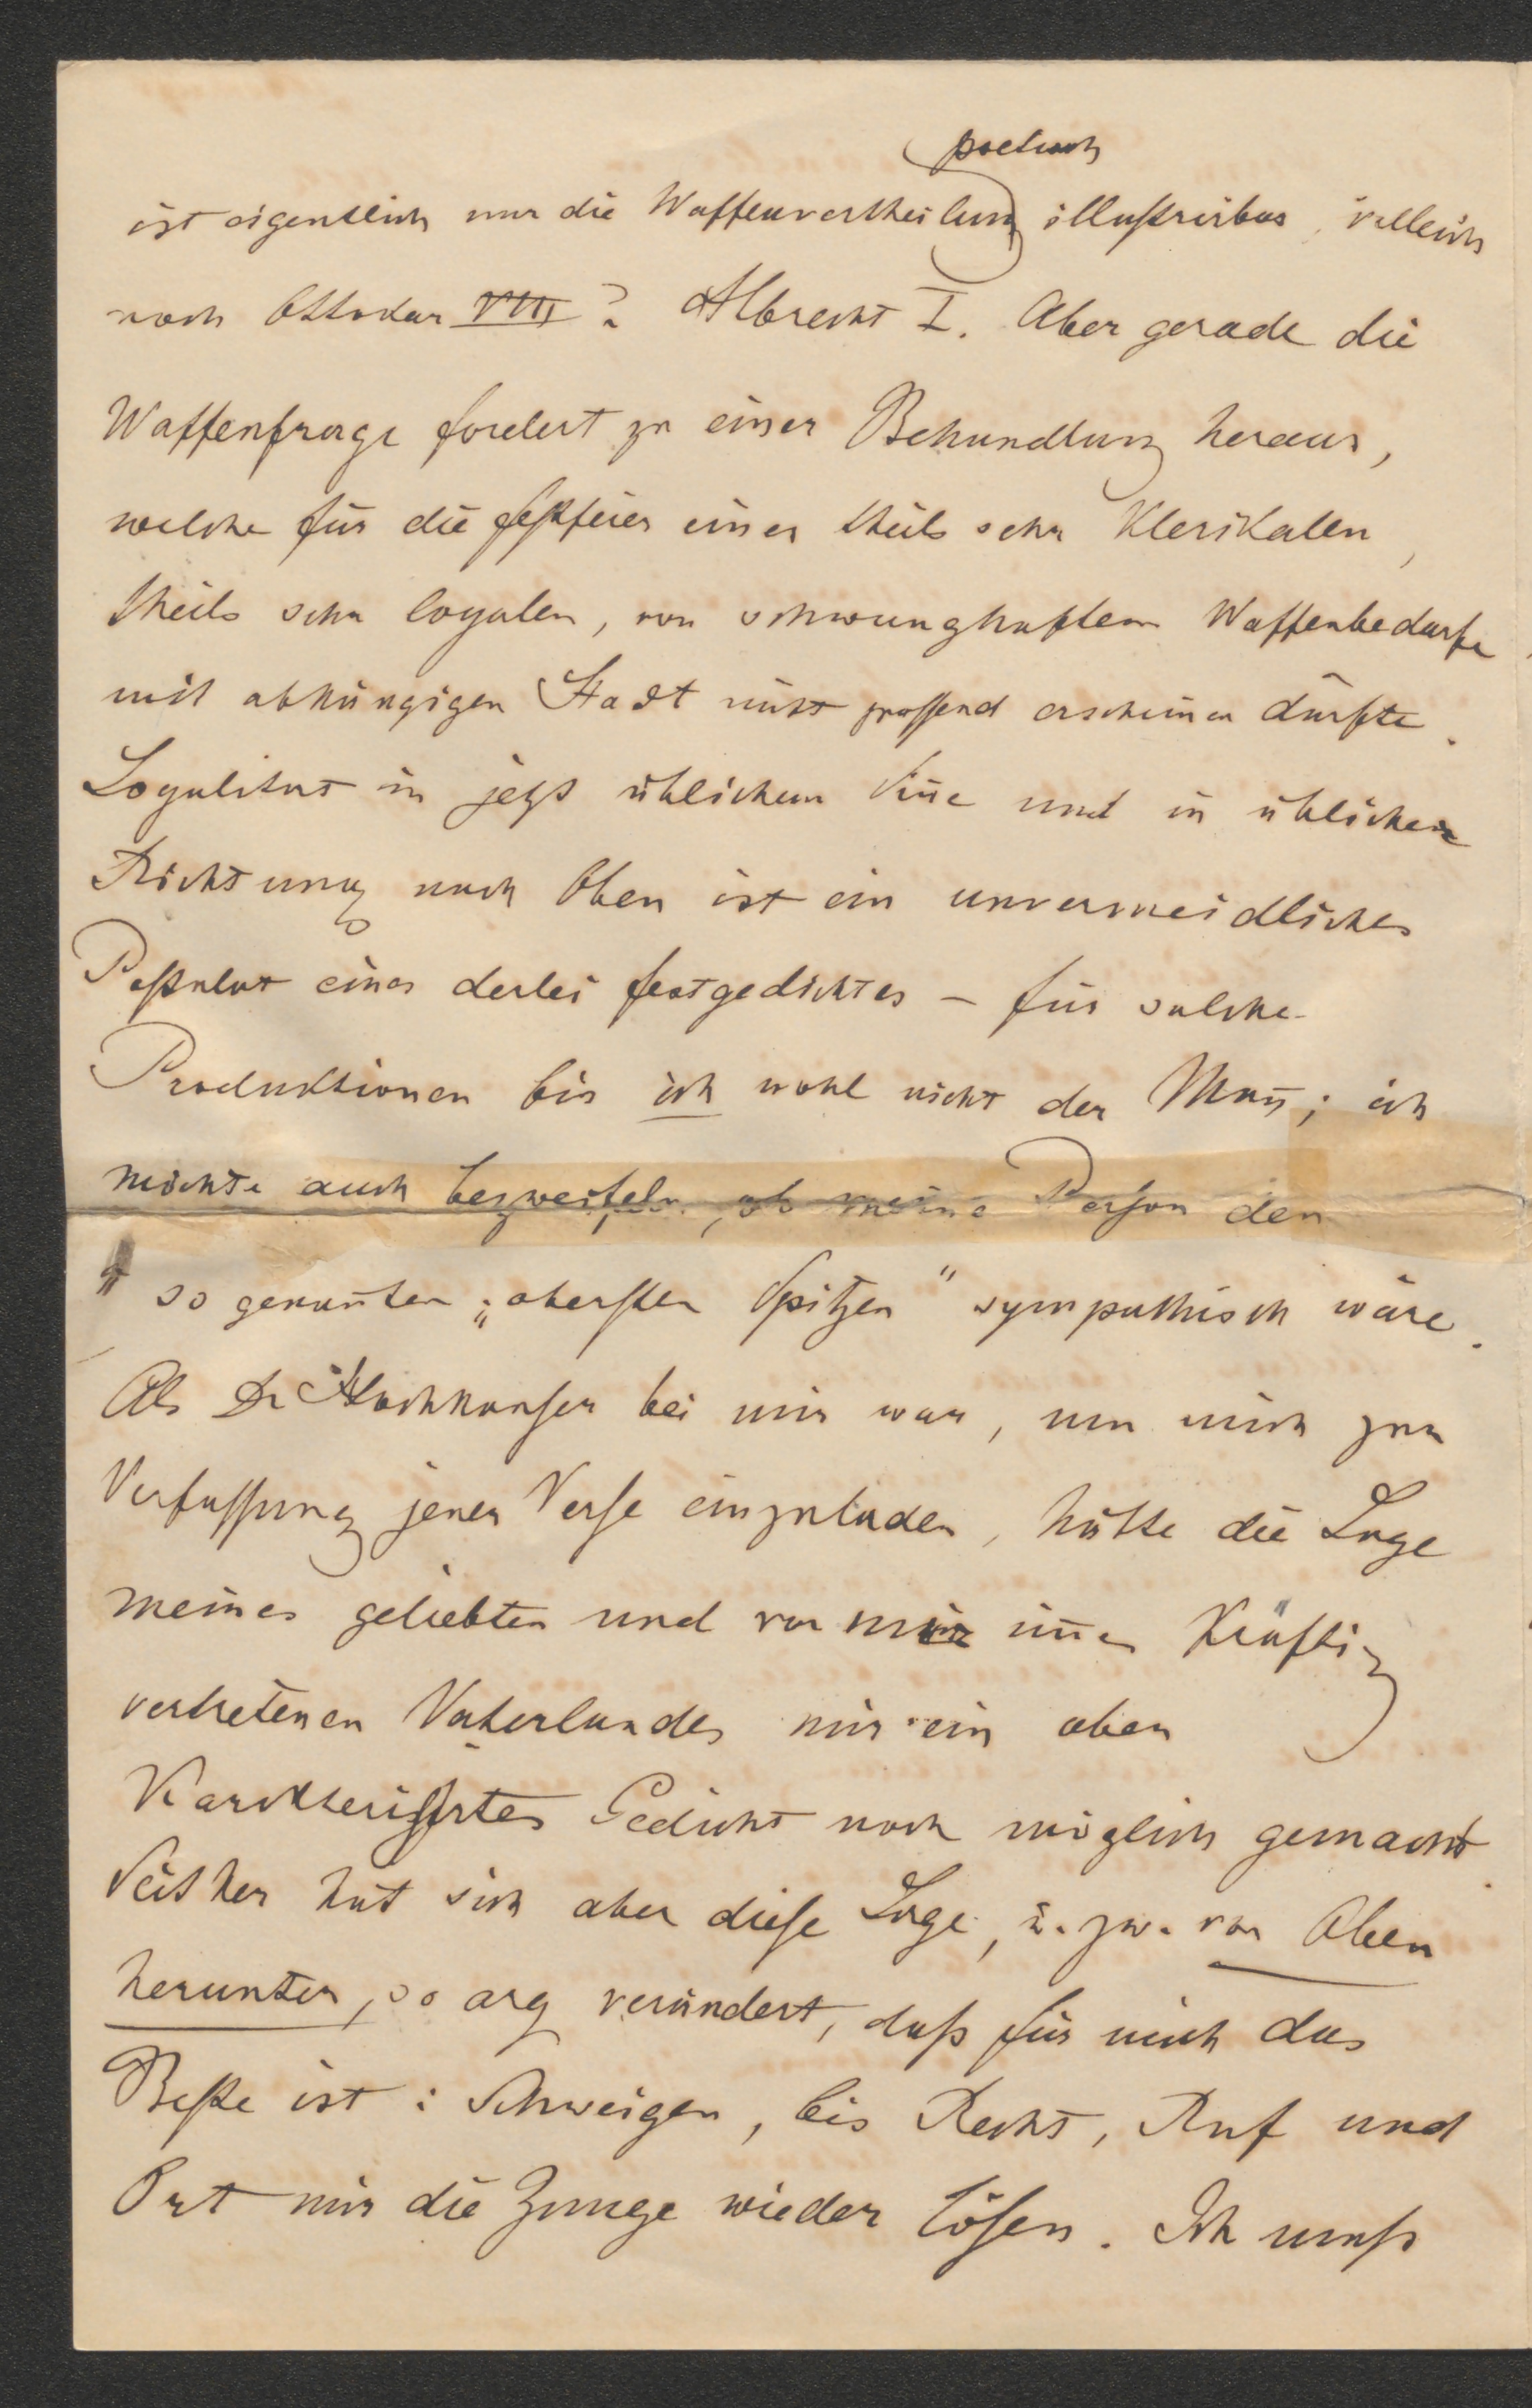 poetisch
ist eigentlich nur die Waffenvertheilung illustrirbar, vielleicht
noch Ottokar VIII? Albrecht I. Aber gerade die
Waffenfrage fordert zu einer Behandlung heraus,
welche für die Festfeier einer theils sehr Klerikalen,
theils sehr loyalen, von schwunghaftem Waffenbedarfe
mit abhängigen Stadt nicht passend erscheinen dürfte.
Loyalität in jetzt üblichem Siñe und in üblicher
Richtung nach Oben ist ein unvermeidliches
Postulat eines derlei Festgedichtes – für solche
Produktionen bin ich wohl nicht der Mañ; ich
möchte auch bezweifeln, ob meine Person den
so genañten „obersten Spitzen" sympathisch wäre.
Als Dr bei mir war, um mich zur
Verfassung jener Verse einzuladen, hätte die Lage
meines geliebten und vor mir iñer Kräftig
vertretenen Vaterlandes mir ein oben
Karakterisirtes Gedicht noch möglich gemacht.
Seither hat sich aber diese Lage, u. zw. von Oben
herunter, so arg verändert, daß für mich das
Beste ist: Schweigen, bis Recht, Ruf und
Ort mir die Zunge wieder lösen. Ich muß